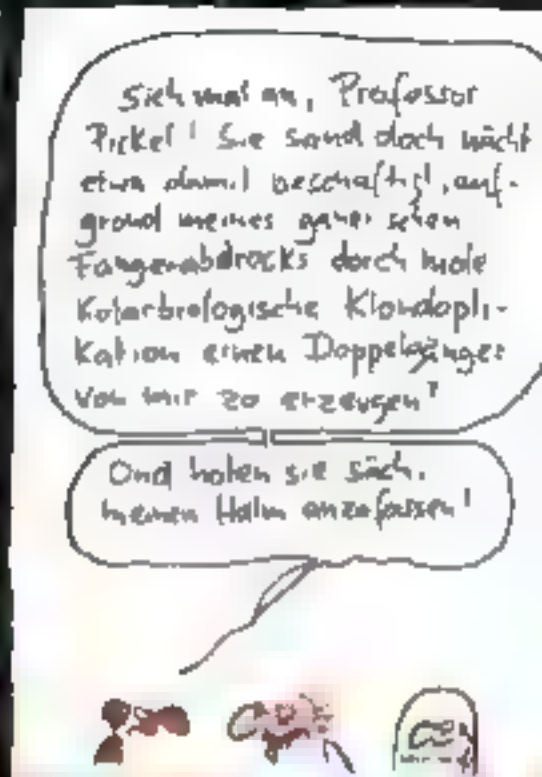 Sieh mal an, Professor
Pickel! Sie sand doch nächt
etwa damit beschäftigt, auf-
grond meines
Fangerabdrocks dorch mole
Kolarbiologische Klondopli-
kation einen Doppelgänger
von mir zo erzeugen?
Ond hoten sie säch,
meinen Halm anzofassen!